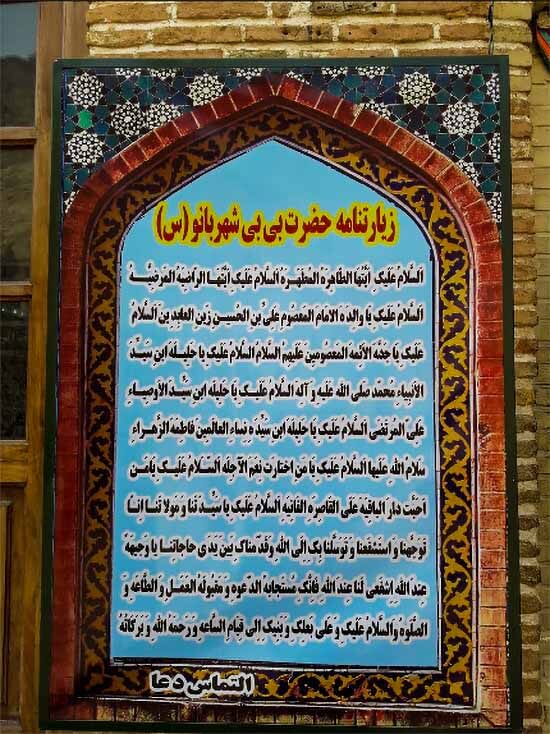 زیارتنامه حضرت بی بی شهربانو (س)
اَلسَّلامُ عَلَیکِ اَیَّتُهَا الطّاهِرَهُ المُطَهَّرَهُ اَلسَّلامُ عَلَیکِ اَیَّتُهَا الرّاضِیَهُ المَرضِیَّهُ
اَلسَّلامُ عَلَیکِ یا والِدَهَ الاِمامِ المَعصُومِ عَلِیِّ بنِ الحُسَینِ زَینِ العابِدینِ اَلسَّلامُ
عَلَیکِ یا جَدَّهَ الاَئِمَّهِ المَعصُومینَ عَلَیهِمُ السَّلامُ اَلسَّلامُ عَلَیکِ یا حَلیلَهَ ابنِ سَیِّدِ
الاَنبِیاءِ مُحَمَّدٍ صَلَّی اللهُ عَلَیهِ وَ آلِهِ اَلسَّلامُ عَلَیکِ یا حَلیلَهَ ابنِ سَیِّدِ الاَوصِیاءِ
عَلِیِّ المُرتَضی اَلسَّلامُ عَلَیکِ یا حَلیلَهَ ابنِ سَیِّدَهِ نِساءِ العالَمینَ فاطِمَهَ الزَّهراءِ
سَلامُ اللهِ عَلَیها اَلسَّلامُ عَلَیکِ یا مَنِ اختارَت نِعَمَ الآجِلَهِ اَلسَّلامُ عَلَیکِ یا مَن
اَحَبَّت دارَ الباقِیَهِ عَلَی القاصِرَهِ الفانِیَهِ اَلسَّلامُ عَلَیکِ یا سَیِّدَتَنا وَ مَولاتَنا اِنّا
تَوَجَّهنا وَ استَشفَعنا وَ تَوَسَّلنا بِکِ اِلَی اللهِ وَ قَدَّمناکِ بَینَ یَدَی حاجاتِنا یا وَجیهَهً
عِندَ اللهِ اِشفَعی لَنا عِندَ اللهِ فَاِنَّکِ مُستَجابَهُ الدَّعوَهِ وَ مَقبُولَهُ العَمَلِ وَ الطّاعَهِ وَ
الصَّلوهِ وَ السَّلامُ عَلَیکِ وَ عَلی بَعلِکِ وَ بَنیکِ اِلی قِیامِ السّاعَهِ وَ رَحمَهُ اللهِ وَ بَرَکاتُهُ
التماس دعا